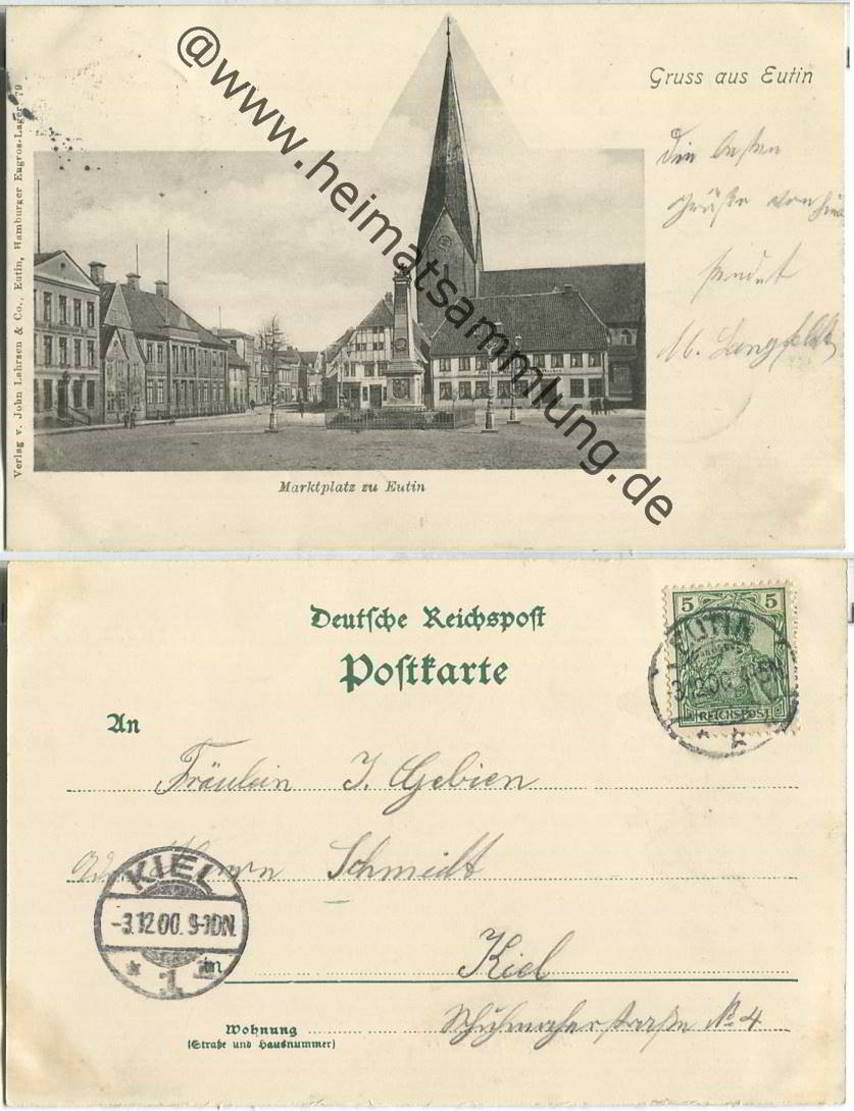 @www.heimatsammlung.de
Gruss aus Eutin
Die besten
Grüße von hier
sendet
M. Langfeldt
Verlag v. John Lahrsen & Co., Eutin, Hamburger Engros-Lager 79
Marktplatz zu Eutin
Deutsche Reichspost
Postkarte
5 5
REICHSPOST
EUTIN
3.12.00
An
Fräulein J. Gebien
Herrn Schmidt
KIEL
-3.12.00. 9-10N.
* 1 *
in
Kiel
Wohnung
(Straße und Hausnummer)
Schuhmacherstraße No 4